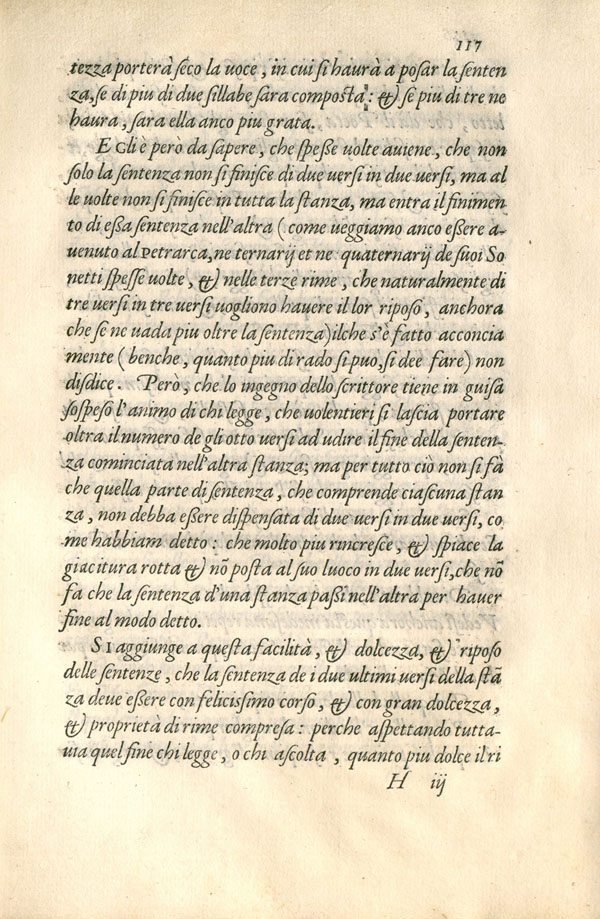 117
tezza porterà seco la uoce, in cui si haurà a posar la senten
za, se di piu di due sillabe sara composta: & se piu di tre ne
haura, sara ella anco piu grata.
E Gli è però da sapere, che spesse uolte auiene, che non
solo la sentenza non si finisce di due uersi in due uersi, ma al
le uolte non si finisce in tutta la stanza, ma entra il finimen
to di essa sentenza nell'altra (come ueggiamo anco essere a-
uenuto al Petrarca, ne ternarij et ne quaternarij de suoi So
netti spesse uolte, & nelle terze rime, che naturalmente di
tre uersi in tre uersi uogliono hauere il lor riposo, anchora
che se ne uada piu oltre la sentenza) ilche s'è fatto acconcia
mente (benche, quanto piu di rado si puo, si dee fare) non
disdice. Però, che lo ingegno dello scrittore tiene in guisa
sospeso l'animo di chi legge, che uolentieri si lascia portare
oltra il numero de gli otto uersi ad udire il fine della senten-
za cominciata nell'altra stanza; ma per tutto ciò non si fà
che quella parte di sentenza, che comprende ciascuna stan
za, non debba essere dispensata di due uersi in due uersi, co
me habbiam detto: che molto piu rincresce, & spiace la
giacitura rotta & nō posta al suo luoco in due uersi, che nō
fa che la sentenza d'una stanza passi nell'altra per hauer
fine al modo detto.
S I aggiunge a questa facilità, & dolcezza, & riposo
delle sentenze, che la sentenza de i due ultimi uersi della stā
za deue essere con felicissimo corso, & con gran dolcezza,
& proprietà di rime compresa: perche aspettando tutta-
uia quel fine chi legge, o chi ascolta, quanto piu dolce il ri
H iij